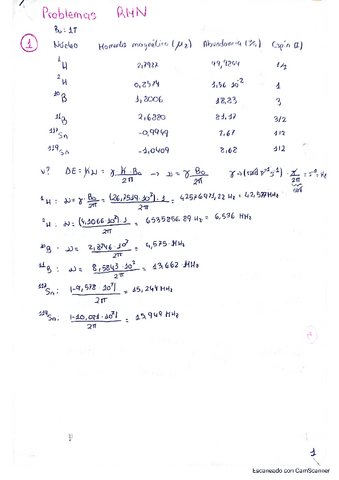 Problemas RMN
B₀ = 1T
① Núcleo Momento magnético (μ₂) Abundancia (%) Espín (I)
¹H 2,7927 99,9844 1/2
²H 0,8574 1,56·10⁻² 1
¹⁰B 1,8006 18,83 3
¹¹B 2,6880 81,17 3/2
¹¹⁷Sn -0,9949 7,67 1/2
¹¹⁹Sn -1,0409 8,68 1/2
ν? ΔE = hν = γ ħ·B₀ / 2π → ν = γ B₀ / 2π
¹H: ν = γ·B₀ / 2π = (26,7519·10⁷)·1 / 2π = 42576971,22 Hz = 42,577 MHz
²H: ν = (4,1066·10⁷)·1 / 2π = 6535856.89 Hz = 6,536 MHz
¹⁰B: ν = 2,8746·10⁷ / 2π = 4,575 MHz
¹¹B: ν = 8,5843·10⁷ / 2π = 13,662 MHz
¹¹⁷Sn: |-9,578·10⁷| / 2π = 15,244 MHz
¹¹⁹Sn: |-10,021·10⁷| / 2π = 15,949 MHz
1
Escaneado con CamScanner